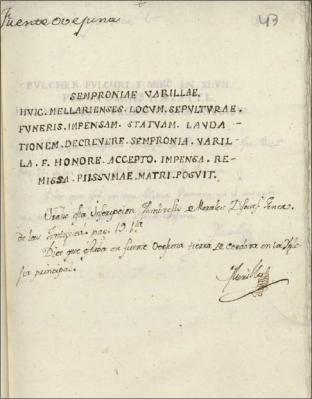 Fuente ovejuna
43
SEMPRONIAE VARILLAE.
HVIC. MELLARIENSES. LOCVM. SEPVLTVRAE.
FVNERIS. IMPENSAM. STATVAM. LAVDA
TIONEM. DECREVERE. SEMPRONIA. VARIL
LA. F. HONORE. ACCEPTO. IMPENSA. RE
MISSA. PIISSVMAE. MATRI. POSVIT.
Traese esta Inscripcion Ambrosio de Morales
de las Antiguea. pag. 191.
Dice que estaba en fuente Ovejuna tierra de Cordova en la Ygle
sia principal.